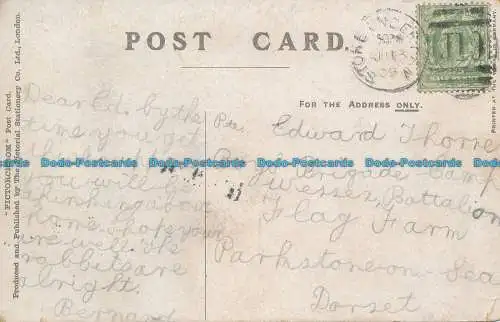 POST CARD.
"PICTORCHROM" Post Card.
Produced and Published by The Pictorial Stationery Co. Ltd., London.
FOR THE ADDRESS ONLY.
STOKE
Dear Ed. by the
time you get
this
you will
thinking about
home. hope your
are well. The
rabbits are
alright.
Bernard
Pte. Edward Thorne
Boys Brigade Camp
Wessex Battalion
Flag Farm
Parkstone-on-Sea
Dorset
Dodo-Postcards Dodo-Postcards Dodo-Postcards Dodo-Postcards Dodo-Postcards